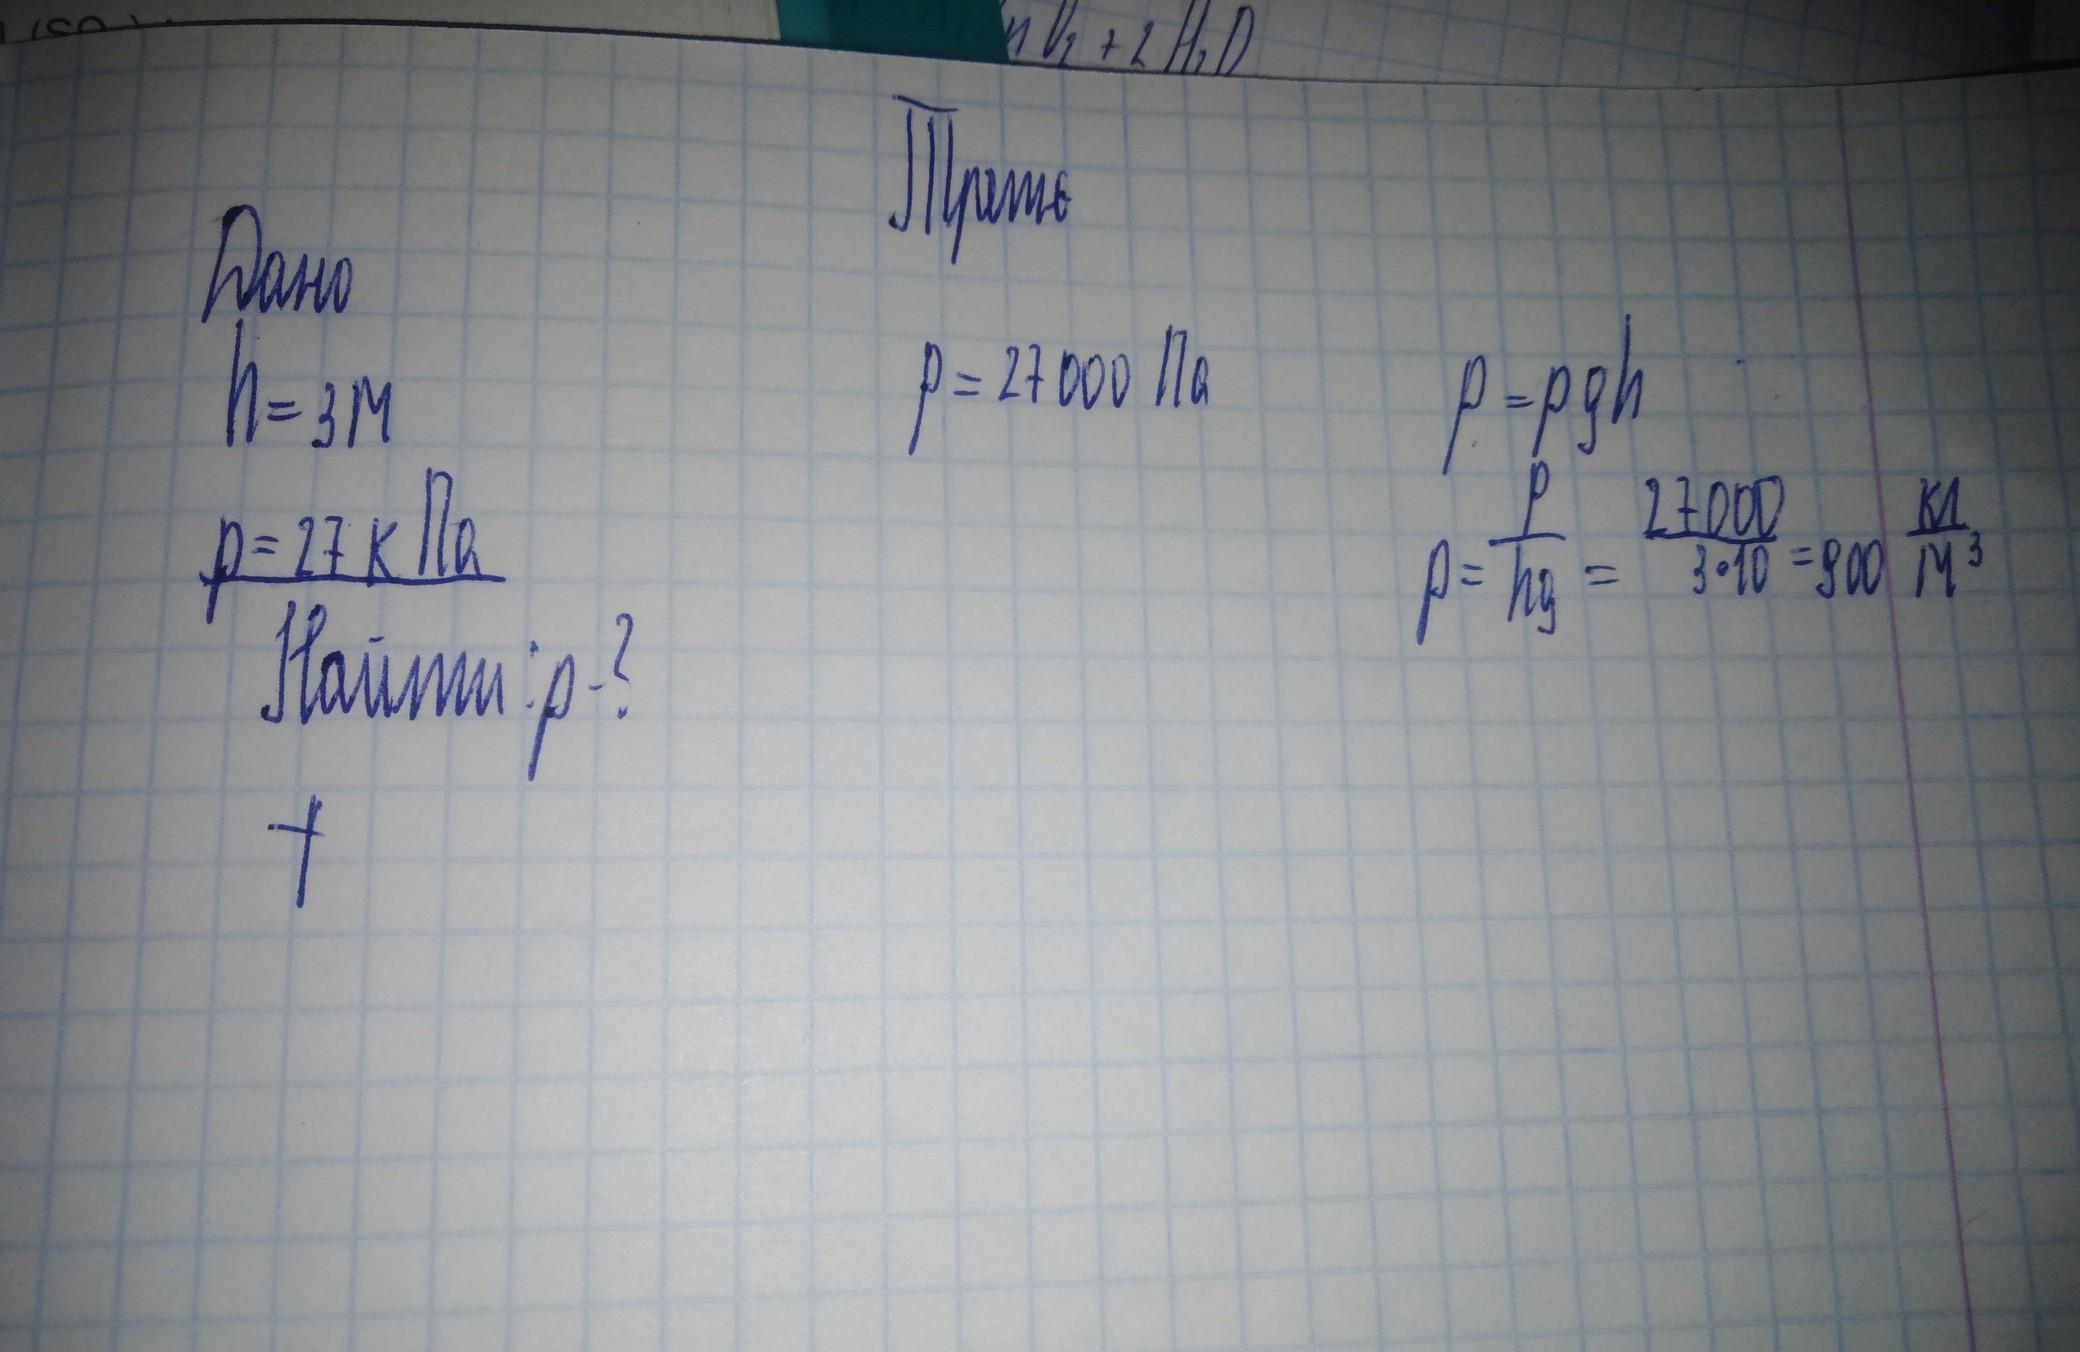 n O₂ + 2 H₂O
Дано
h = 3 М
p = 27 к Па
Найти : p - ?
p = 27 000 Па
p = pgh
p = p/hg = 27000/3•10 = 900 кл/м³